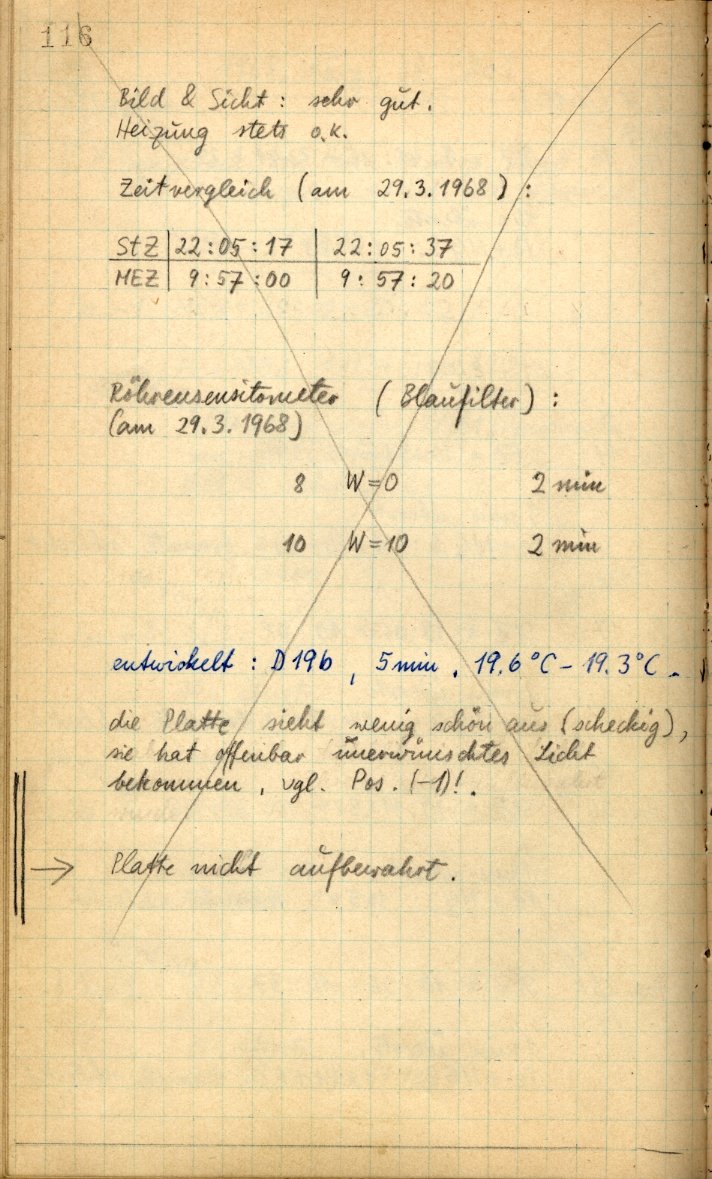 116
Bild & Sicht: sehr gut.
Heizung stets o.k.
Zeitvergleich (am 29.3.1968):
StZ 22:05:17 22:05:37
MEZ 9:57:00 9:57:20
Röhrensensitometer (Blaufilter):
(am 29.3.1968)
8 W=0 2 min
10 W=10 2 min
entwickelt: D19b, 5 min, 19.6°C - 19.3°C.
die Platte sieht wenig schön aus (scheckig),
sie hat offenbar unerwünschtes Licht
bekommen, vgl. Pos. (-1)!.
→ Platte nicht aufbewahrt.